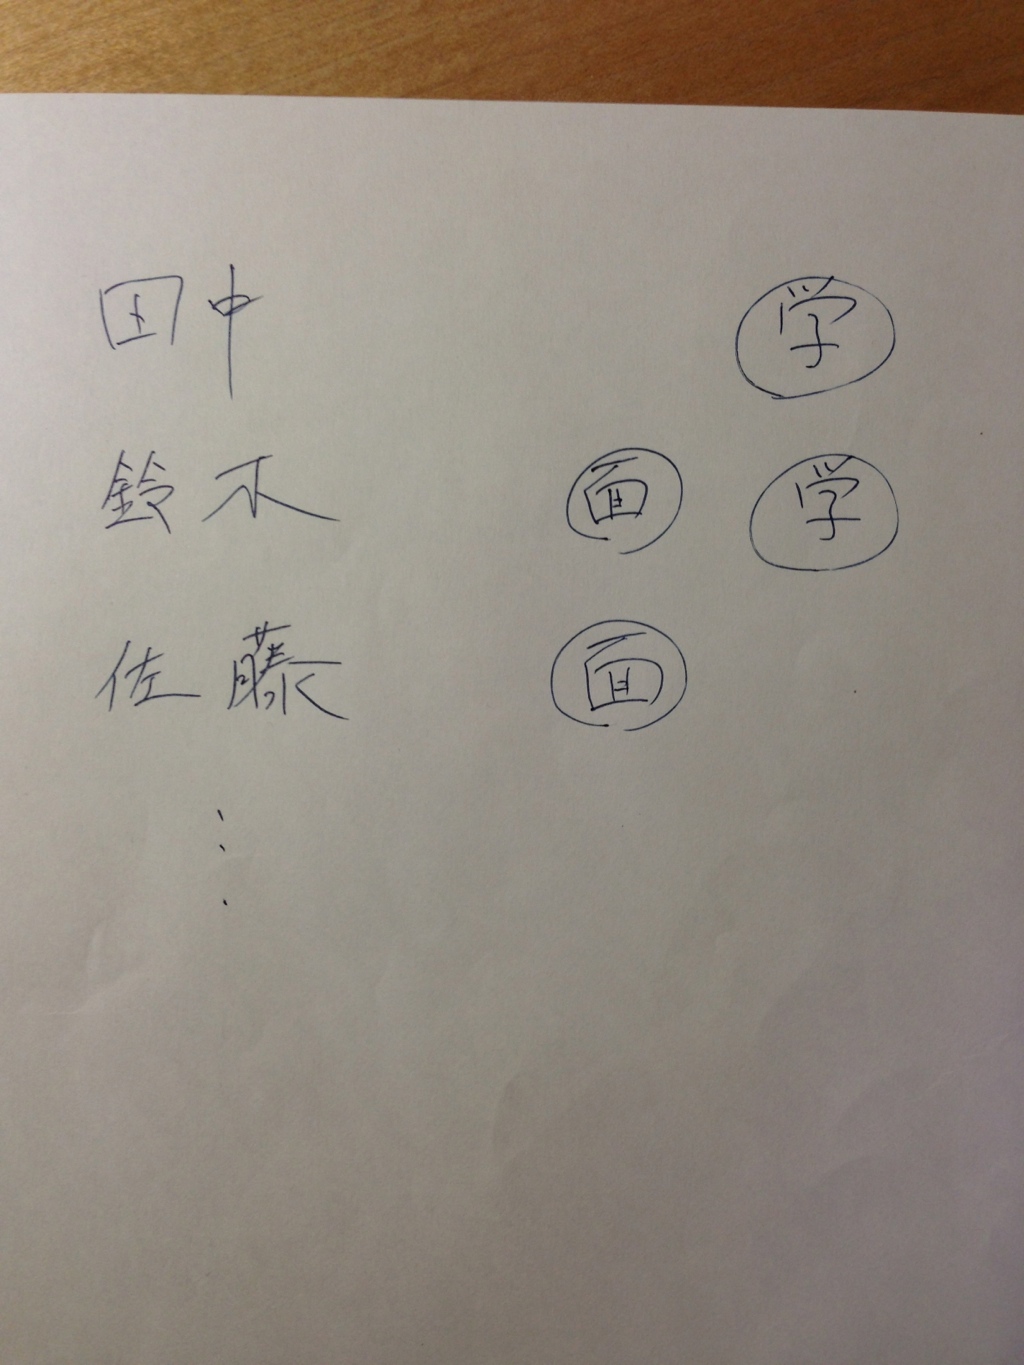 田中 学
鈴木 面 学
佐藤 面
⋮